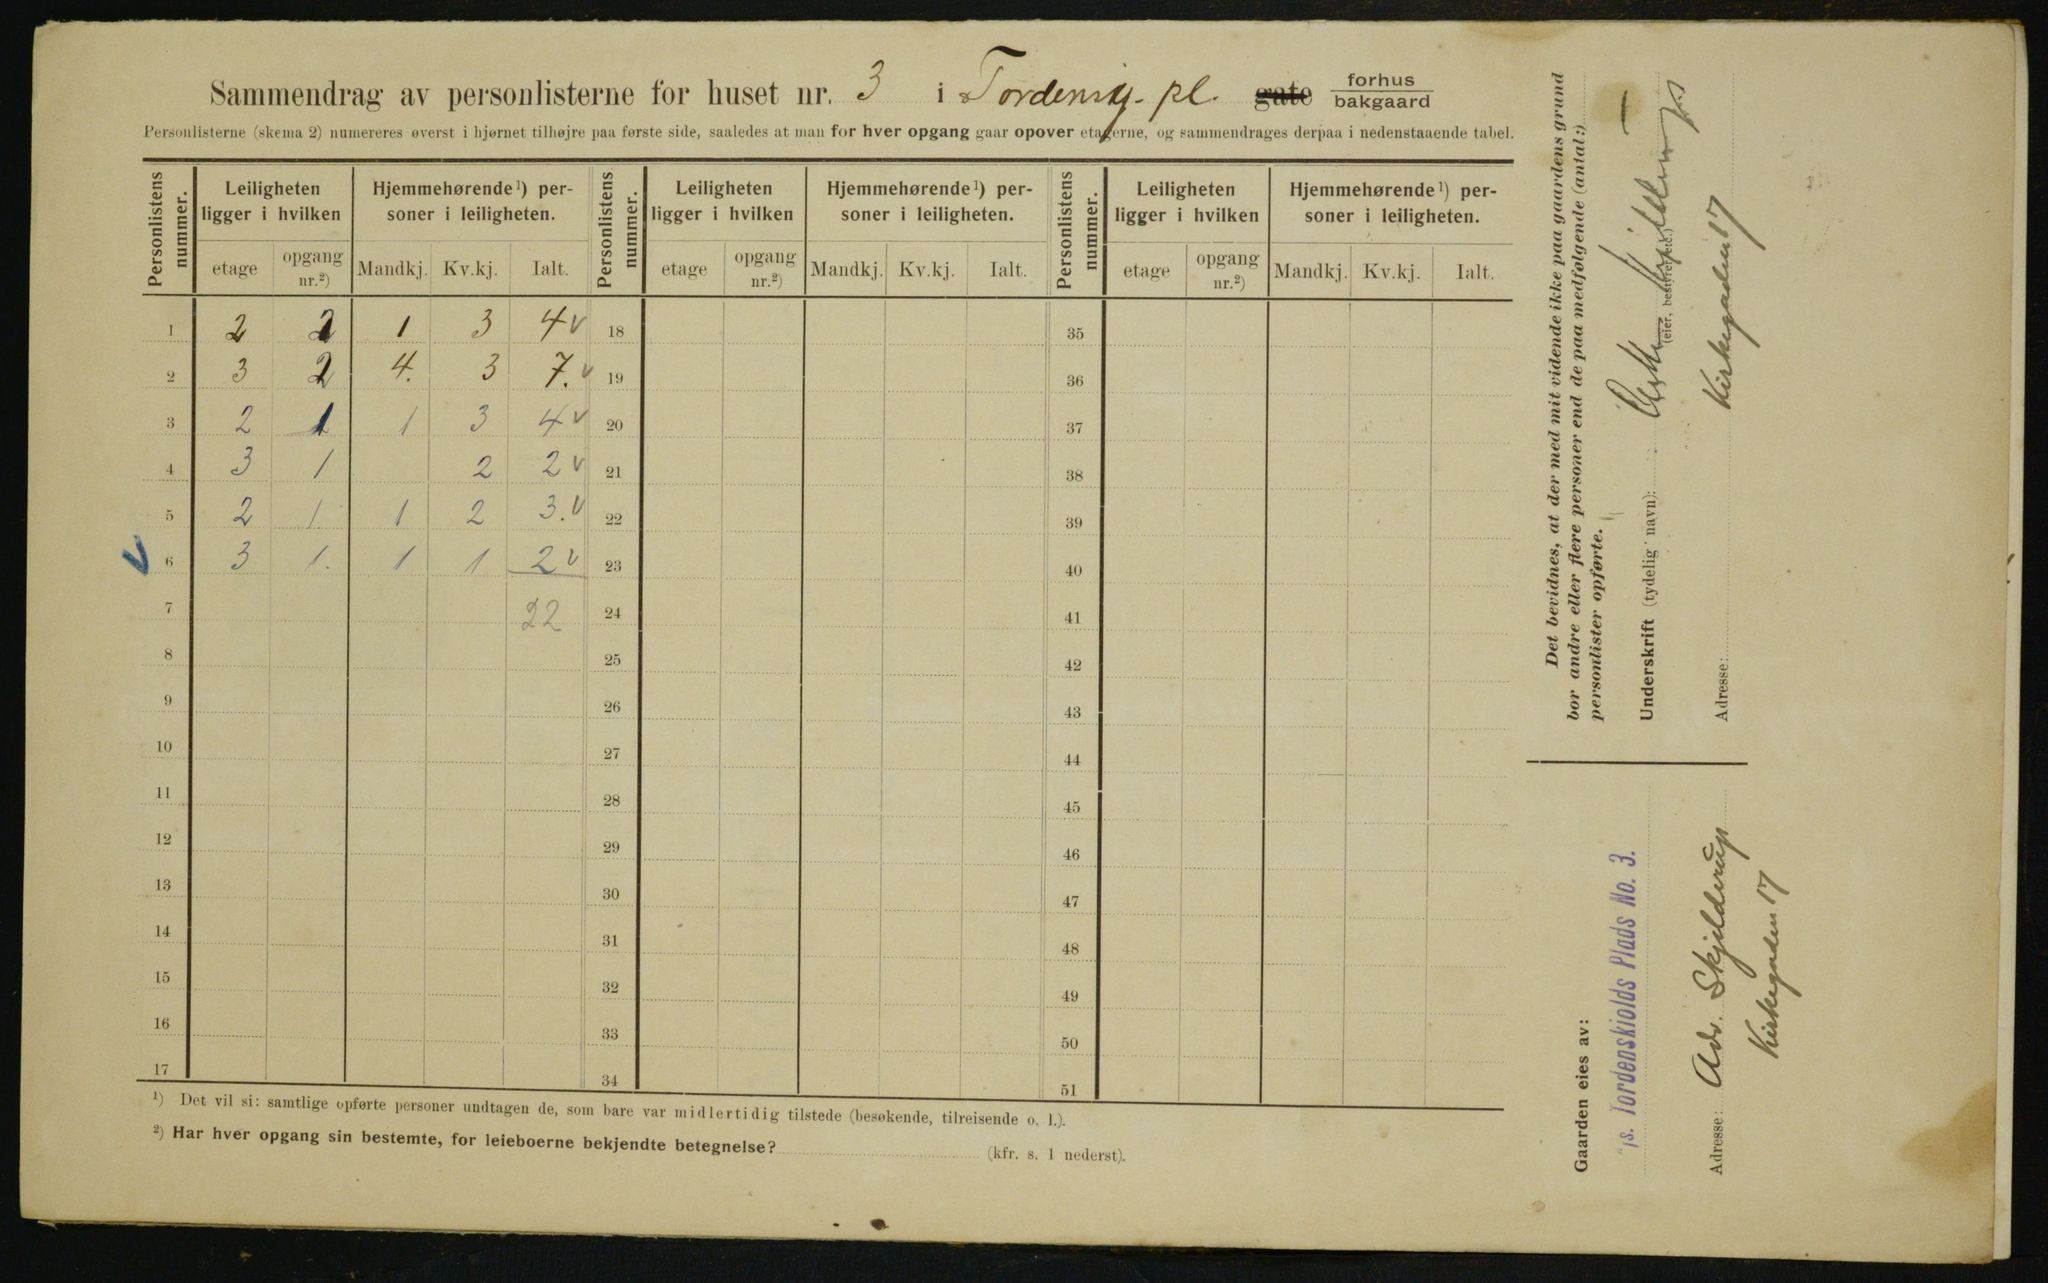 Sammendrag av personlisterne for huset nr. 3 i Tordensk. pl. gate forhus/bakgaard
Personlisterne (skema 2) numereres øverst i hjørnet tilhøjre paa første side, saaledes at man for hver opgang gaar opover etagerne, og sammendrages derpaa i nedenstaaende tabel.
Personlistens nummer. Leiligheten ligger i hvilken Hjemmehørende¹) personer i leiligheten. Personlistens nummer. Leiligheten ligger i hvilken Hjemmehørende¹) personer i leiligheten. Personlistens nummer. Leiligheten ligger i hvilken Hjemmehørende¹) personer i leiligheten.
etage opgang nr.²) Mandkj. Kv.kj. Ialt. etage opgang nr.²) Mandkj. Kv.kj. Ialt. etage opgang nr.²) Mandkj. Kv.kj. Ialt.
1 2 1 3 4 v 18 35
2 3 4. 3 7. v 19 36
3 2 1 1 3 4 v 20 37
4 3 1 2 2 v 21 38
5 2 1 1 2 3. v 22 39
v 6 3 1. 1 1 2 v 23 40
7 22 24 41
8 25 42
9 26 43
10 27 44
11 28 45
12 29 46
13 30 47
14 31 48
15 32 49
16 33 50
17 34 51
¹) Det vil si: samtlige opførte personer undtagen de, som bare var midlertidig tilstede (besøkende, tilreisende o. l.).
²) Har hver opgang sin bestemte, for leieboerne bekjendte betegnelse? (kfr. s. 1 nederst).
Det bevidnes, at der med mit vidende ikke paa gaardens grund
bor andre eller flere personer end de paa medfølgende (antal:) —
personlister opførte.
Underskrift (tydelig navn):
(eier, bestyrer etc.)
Adresse: Kirkegaden 17
Gaarden eies av:
A/s. Tordenskiolds Plads No. 3.
Adresse: Adv. Skjelderup
Kirkegaden 17